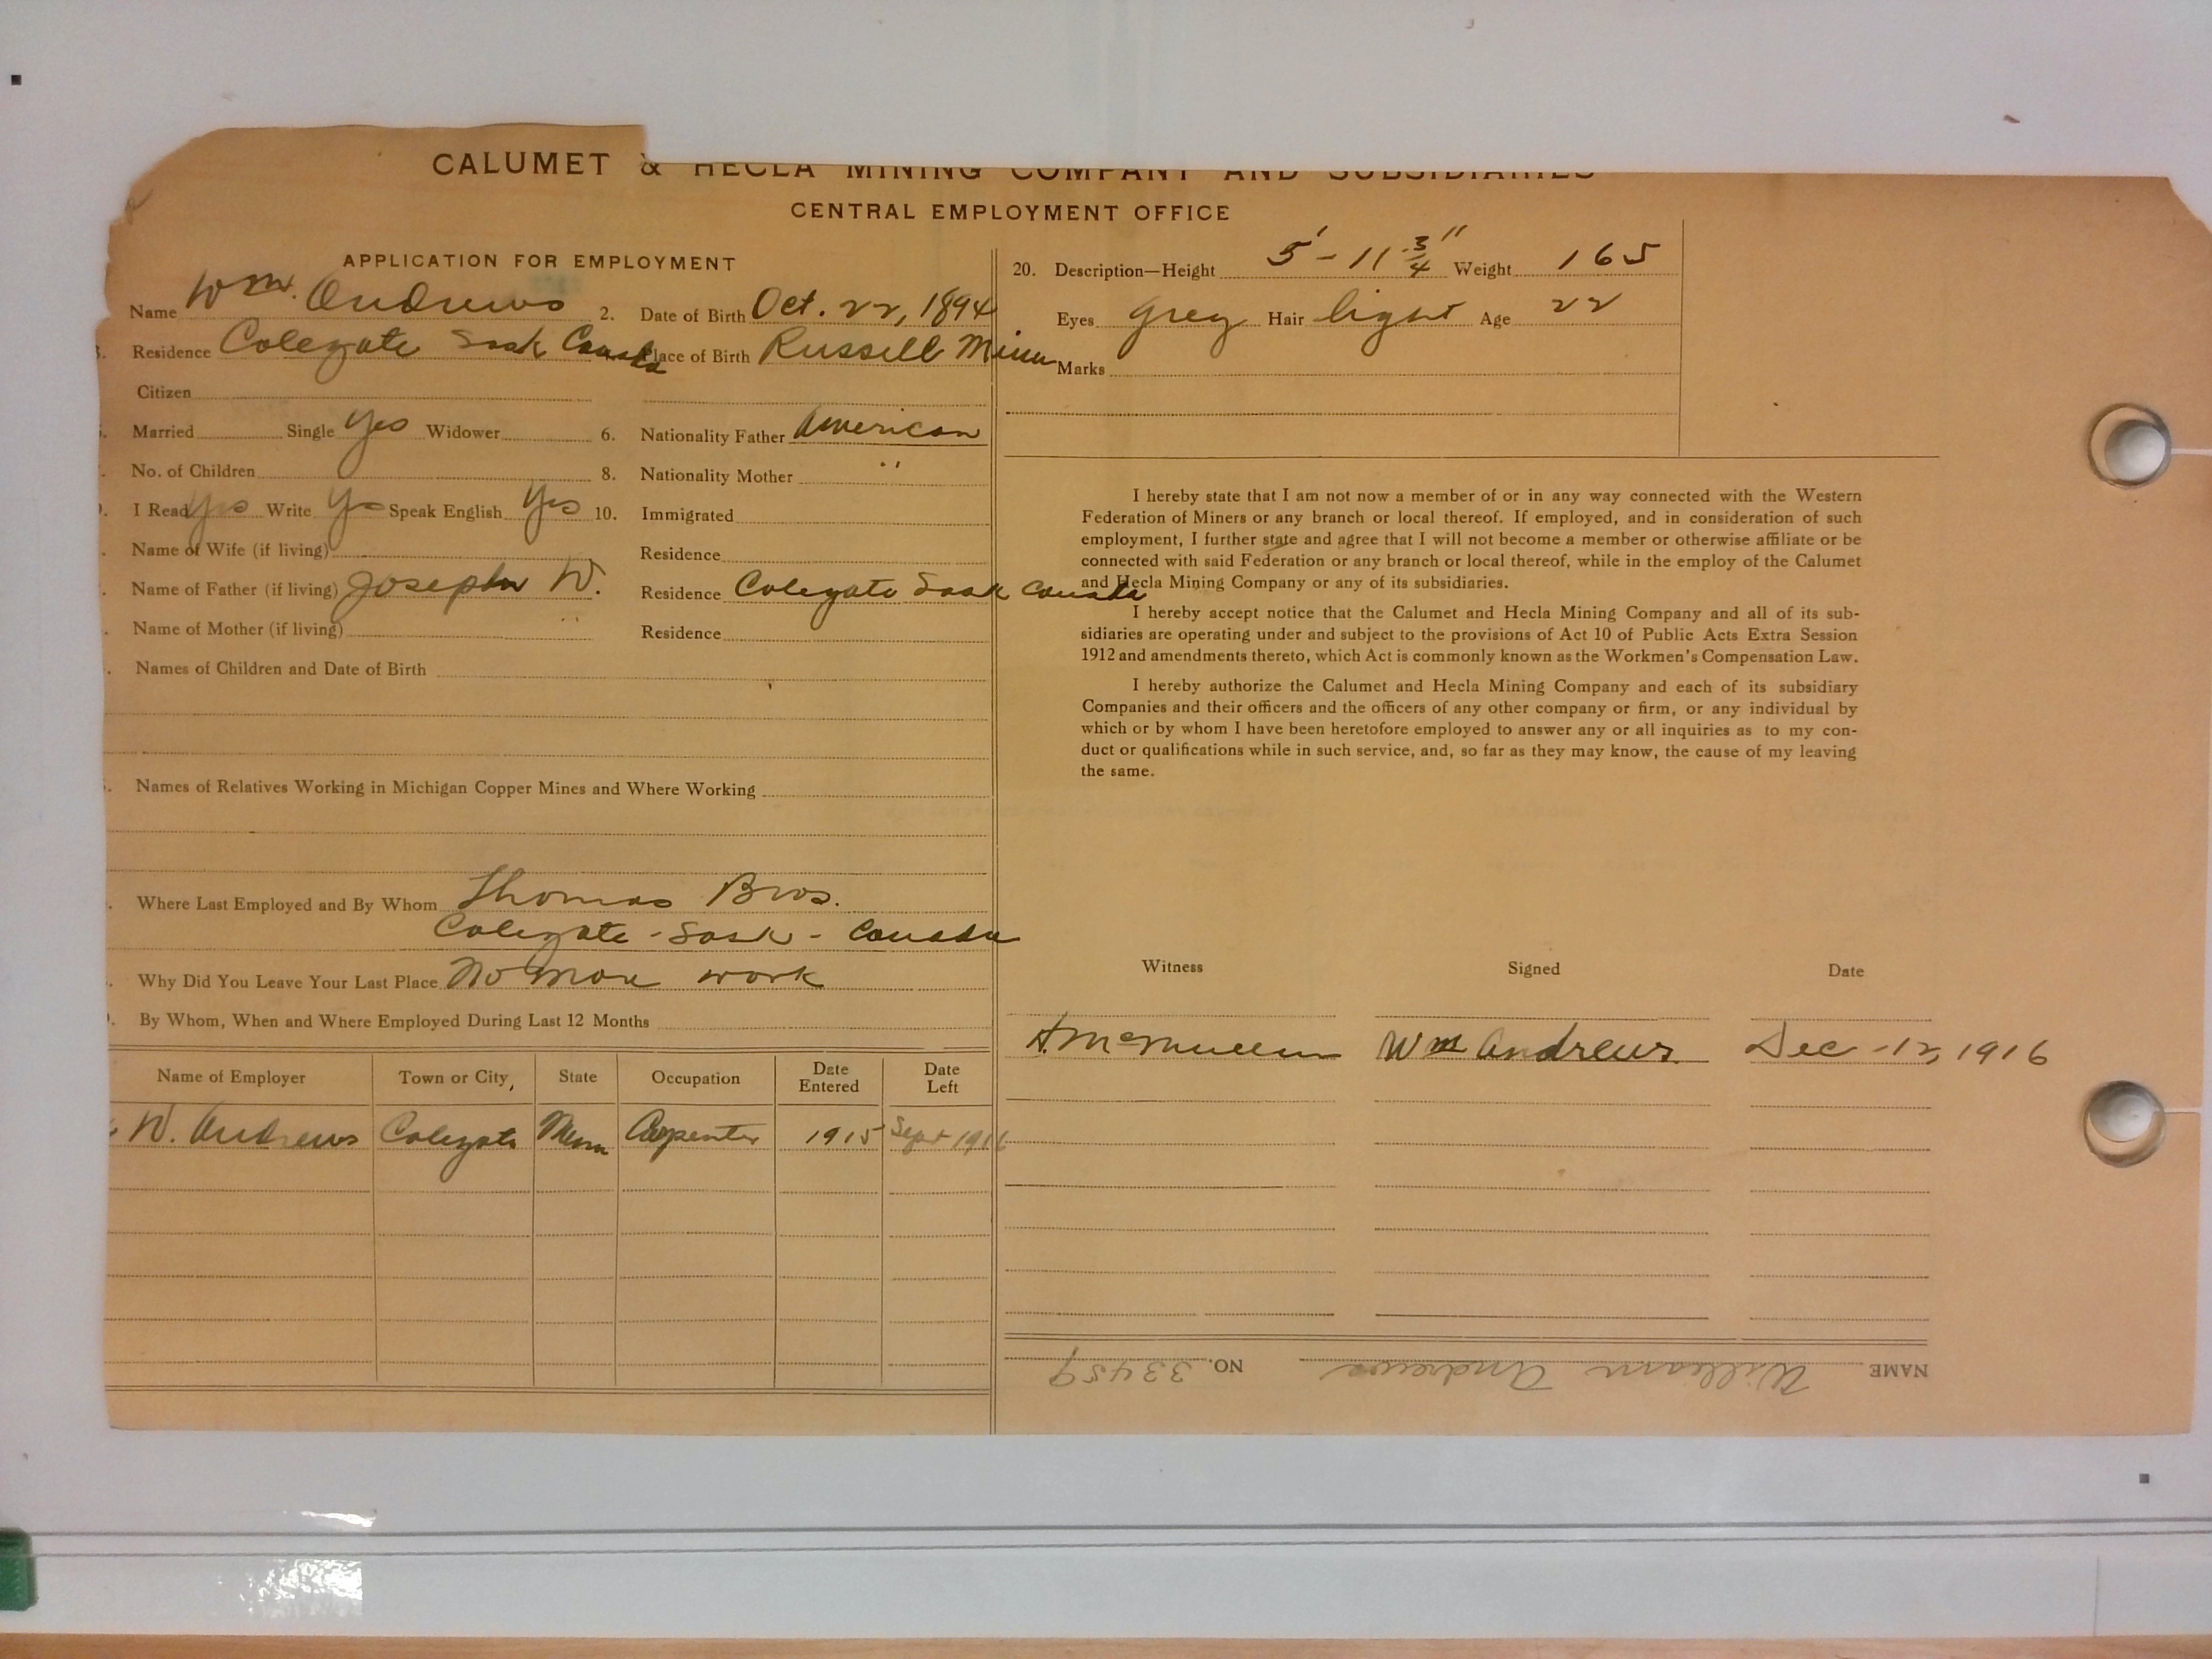 CALUMET & HECLA MINING COMPANY AND SUBSIDIARIES
CENTRAL EMPLOYMENT OFFICE
APPLICATION FOR EMPLOYMENT
Name Wm. Andrews 2. Date of Birth Oct. 22, 1894
Residence Colegate Sask Canada Place of Birth Russell Minn
Citizen
Married Single Yes Widower 6. Nationality Father American
No. of Children 8. Nationality Mother "
I Read Yes Write Yes Speak English Yes 10. Immigrated
Name of Wife (if living) Residence
Name of Father (if living) Joseph W. Residence Colegate Sask Canada
Name of Mother (if living) " Residence
Names of Children and Date of Birth
Names of Relatives Working in Michigan Copper Mines and Where Working
Where Last Employed and By Whom Thomas Bros.
Colegate - Sask - Canada
Why Did You Leave Your Last Place No more work
By Whom, When and Where Employed During Last 12 Months
Name of Employer Town or City, State Occupation Date Entered Date Left
W. Andrews Colegate Minn Carpenter 1915 Sept 1916
20. Description—Height 5'-11 3/4" Weight 165
Eyes grey Hair light Age 22
Marks
I hereby state that I am not now a member of or in any way connected with the Western
Federation of Miners or any branch or local thereof. If employed, and in consideration of such
employment, I further state and agree that I will not become a member or otherwise affiliate or be
connected with said Federation or any branch or local thereof, while in the employ of the Calumet
and Hecla Mining Company or any of its subsidiaries.
I hereby accept notice that the Calumet and Hecla Mining Company and all of its sub-
sidiaries are operating under and subject to the provisions of Act 10 of Public Acts Extra Session
1912 and amendments thereto, which Act is commonly known as the Workmen's Compensation Law.
I hereby authorize the Calumet and Hecla Mining Company and each of its subsidiary
Companies and their officers and the officers of any other company or firm, or any individual by
which or by whom I have been heretofore employed to answer any or all inquiries as to my con-
duct or qualifications while in such service, and, so far as they may know, the cause of my leaving
the same.
Witness Signed Date
McMullen Wm Andrews Dec - 12, 1916
NAME William Andrews NO. 33459